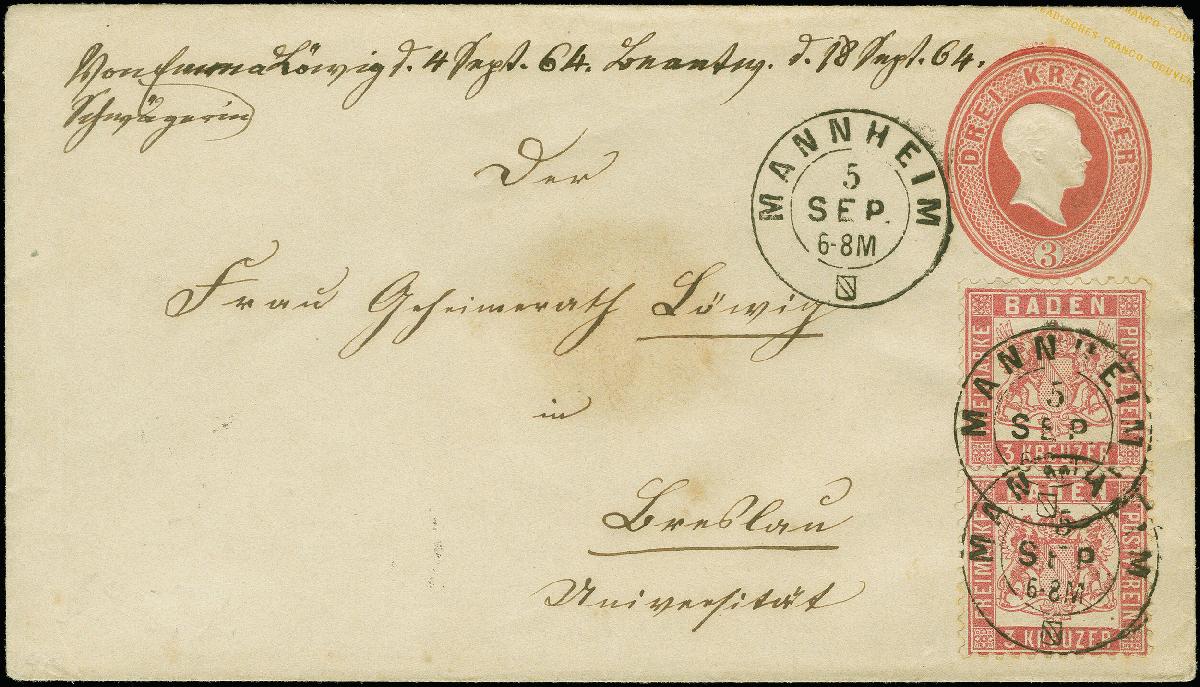 BADISCHES-FRANCO-COUVERT
Von Emma Löwig d. 4 Sept. 64. Beantw. d. 18 Sept. 64.
Schwägerin
DREI KREUZER
3
MANNHEIM
5
SEP.
6-8M
Der
Frau Geheimerath Löwig
in
Breslau
Universität
BADEN
FREIMARKE
POSTVEREIN
3 KREUZER
MANNHEIM
5
SEP
BADEN
FREIMARKE
POSTVEREIN
3 KREUZER
MANNHEIM
5
SEP
6-8M